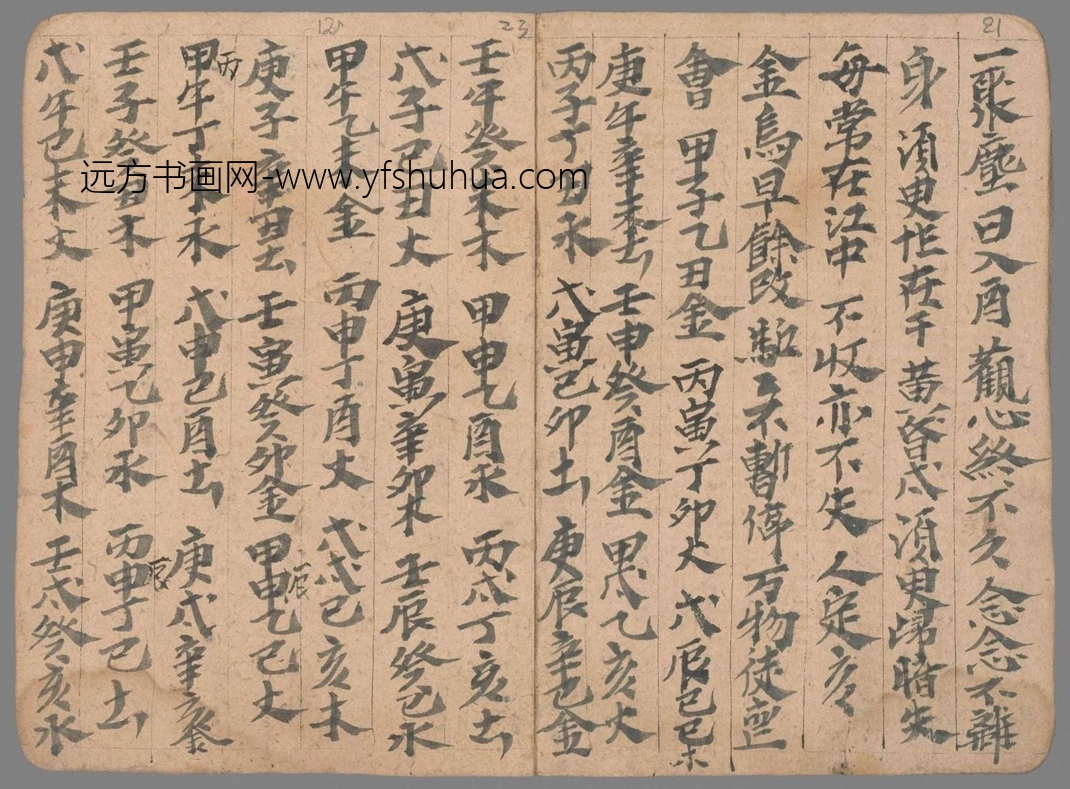 12 23 21
一聚塵日入酉觀心終不久念念不離
身須臾恒在手黃昏戌須臾歸暗失
每常在江中不收亦不失人定亥
金烏早餘改 天不暫停万物徒
會 甲子乙丑金 丙寅丁卯火 戊辰己巳木
庚午辛未土 壬申癸酉金 甲戌乙亥火
丙子丁丑水 戊寅己卯土 庚辰辛巳金
壬午癸未木 甲申乙酉水 丙戌丁亥土
戊子己丑火 庚寅辛卯木 壬辰癸巳水
甲午乙未金 丙申丁酉火 戊戌己亥木
庚子辛丑土 壬寅癸卯金 甲申乙巳火
辰
甲午丁未水 戊申己酉土 庚戌辛亥金
丙
壬子癸丑木 甲寅乙卯水 丙申丁巳土
辰
戊午己未火 庚申辛酉木 壬戌癸亥水
远方书画网-www.yfshuhua.com